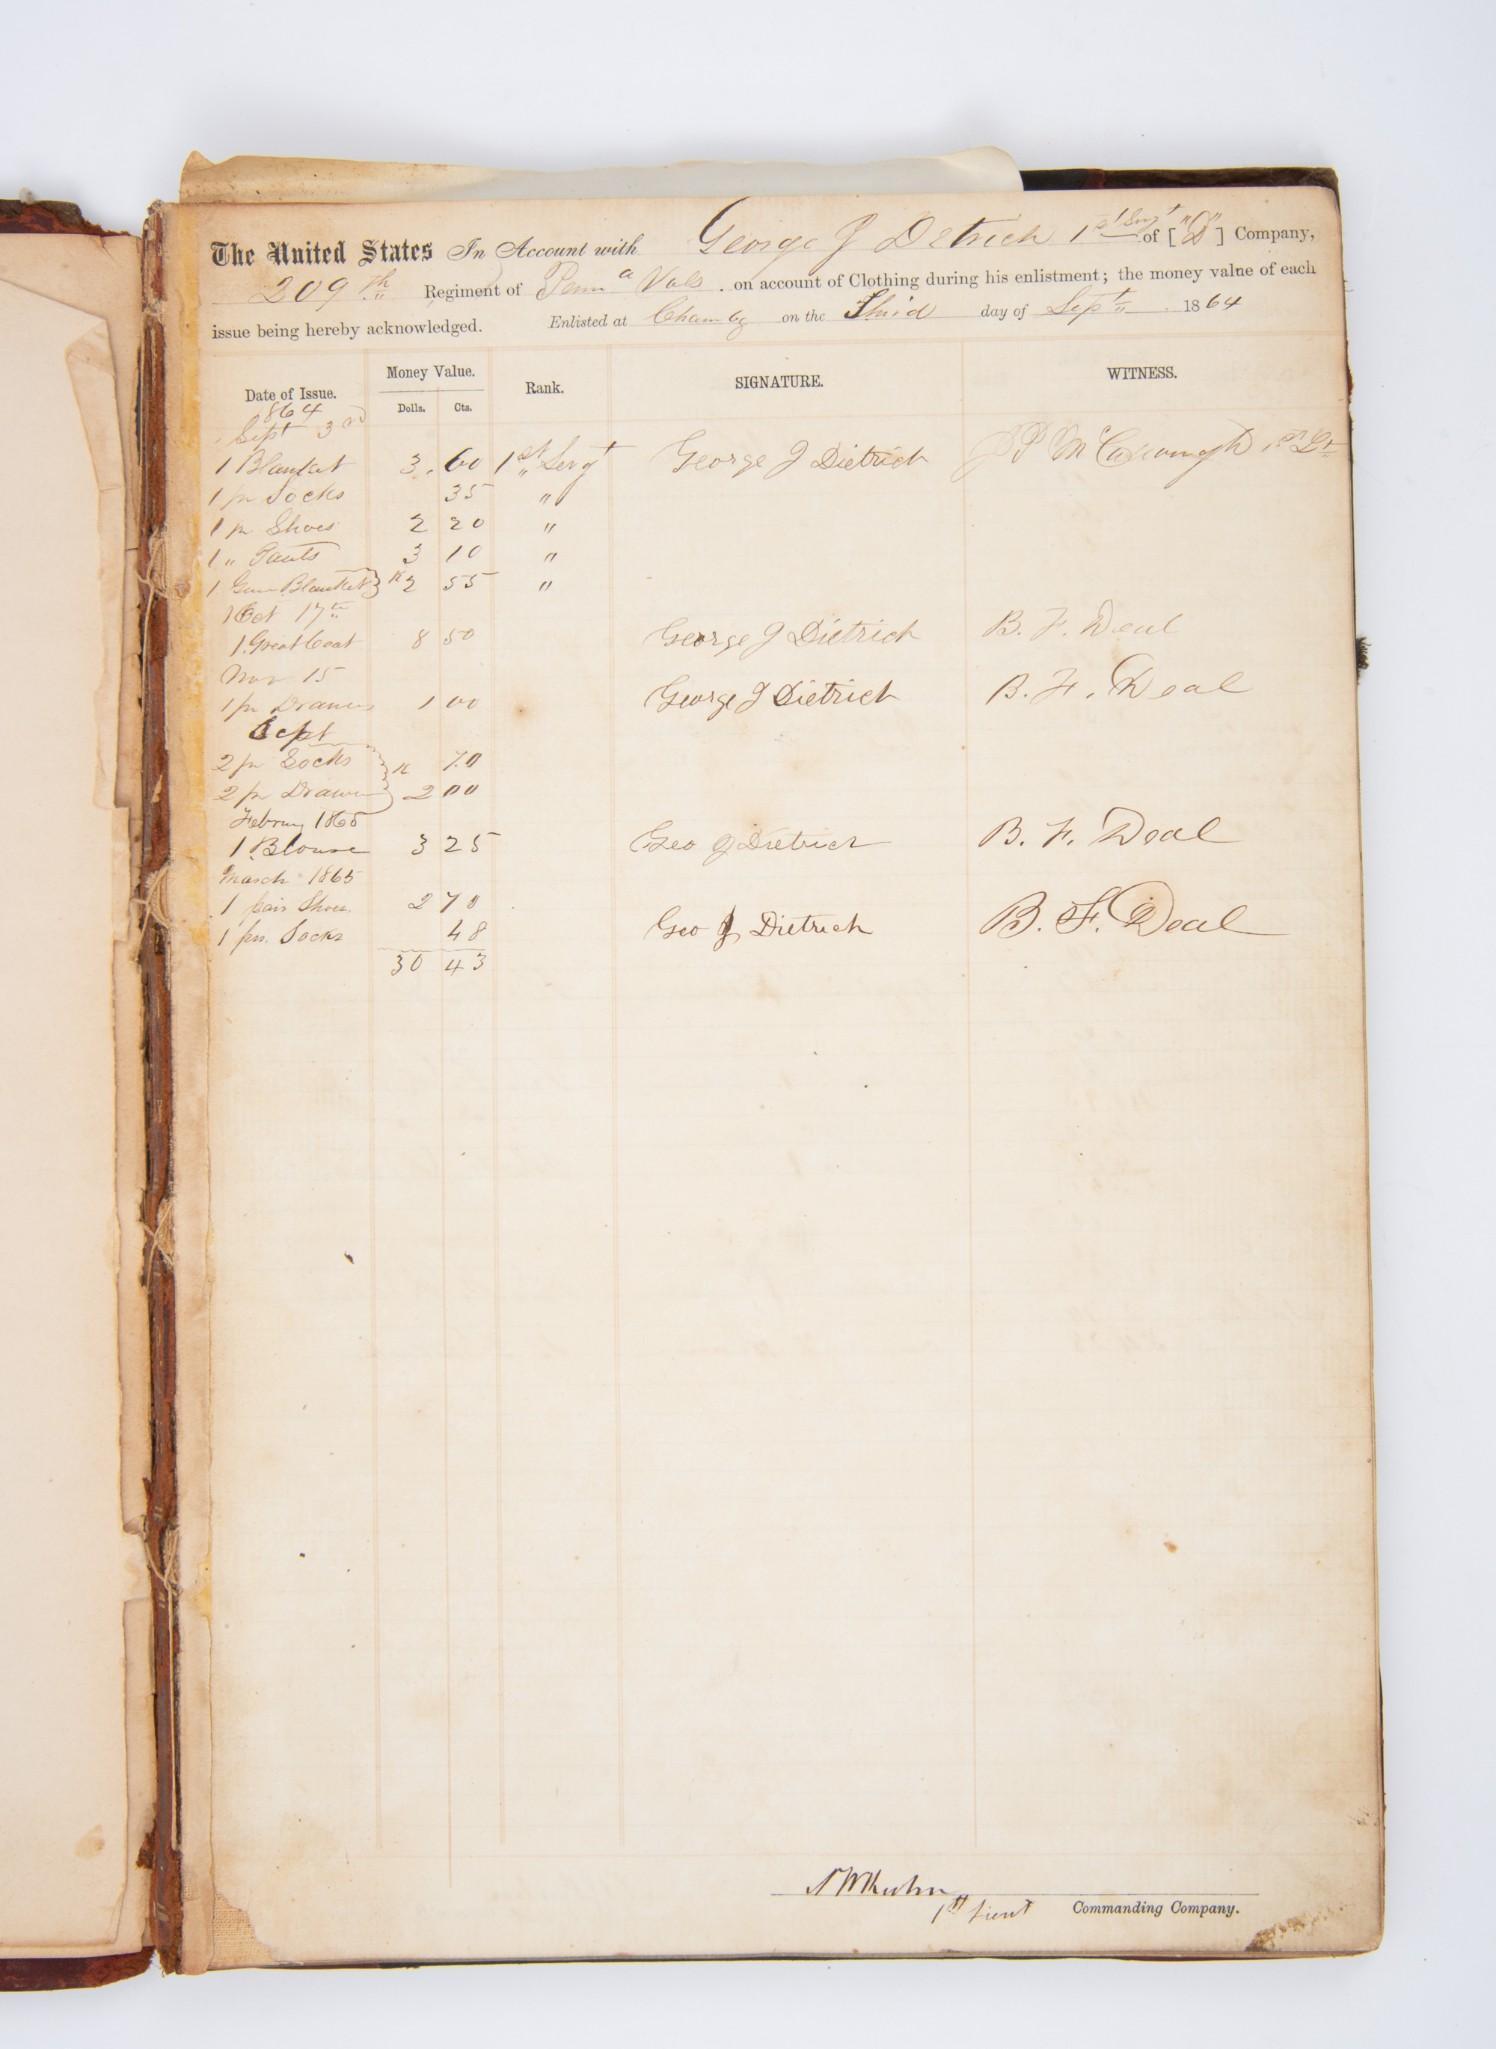 The United States In Account with George J Detrich 1st Sergt of ["D"] Company,
209th Regiment of Penna Vols. on account of Clothing during his enlistment; the money value of each
issue being hereby acknowledged. Enlisted at Chambg on the Third day of Sept 1864
Date of Issue. Money Value. Rank. SIGNATURE. WITNESS.
Dolls. Cts.
1864
Sept 3rd
1 Blanket 3.60 1st Sergt George J Dietrich 1st Lt
1 pr Socks 35 "
1 pr Shoes 2 20 "
1 " Pants 3 10 "
1 Gum Blanket 2 55 "
Oct 17th
1 Great Coat 8 50 George J Dietrich B. F. Deal
Nov 15
1 pr Drawers 1 00 George J Dietrich B. F. Deal
Sept
2 pr Socks 70
2 pr Drawers 2 00
Februy 1865
1 Blouse 3 25 Geo J Dietrich B. F. Deal
March 1865
1 pair Shoes 2 70
1 pr. Socks 48 Geo J Dietrich B. F. Deal
30 43
1st Lieut Commanding Company.